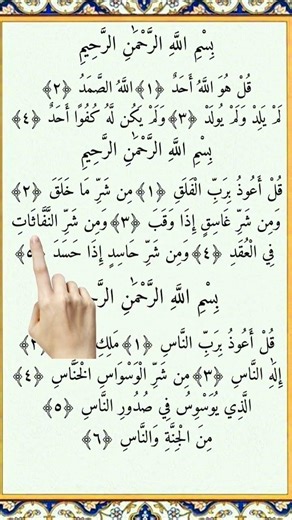 بِسْمِ اللَّهِ الرَّحْمَٰنِ الرَّحِيمِ
قُلْ هُوَ اللَّهُ أَحَدٌ ﴿١﴾ اللَّهُ الصَّمَدُ ﴿٢﴾
لَمْ يَلِدْ وَلَمْ يُولَدْ ﴿٣﴾ وَلَمْ يَكُن لَّهُ كُفُوًا أَحَدٌ ﴿٤﴾
بِسْمِ اللَّهِ الرَّحْمَٰنِ الرَّحِيمِ
قُلْ أَعُوذُ بِرَبِّ الْفَلَقِ ﴿١﴾ مِن شَرِّ مَا خَلَقَ ﴿٢﴾
وَمِن شَرِّ غَاسِقٍ إِذَا وَقَبَ ﴿٣﴾ وَمِن شَرِّ النَّفَّاثَاتِ
فِي الْعُقَدِ ﴿٤﴾ وَمِن شَرِّ حَاسِدٍ إِذَا حَسَدَ ﴿٥﴾
بِسْمِ اللَّهِ الرَّحْمَٰنِ
قُلْ أَعُوذُ بِرَبِّ النَّاسِ ﴿١﴾ مَلِكِ ﴿٢﴾
إِلَٰهِ النَّاسِ ﴿٣﴾ مِن شَرِّ الْوَسْوَاسِ الْخَنَّاسِ ﴿٤﴾
الَّذِي يُوَسْوِسُ فِي صُدُورِ النَّاسِ ﴿٥﴾
مِنَ الْجِنَّةِ وَالنَّاسِ ﴿٦﴾